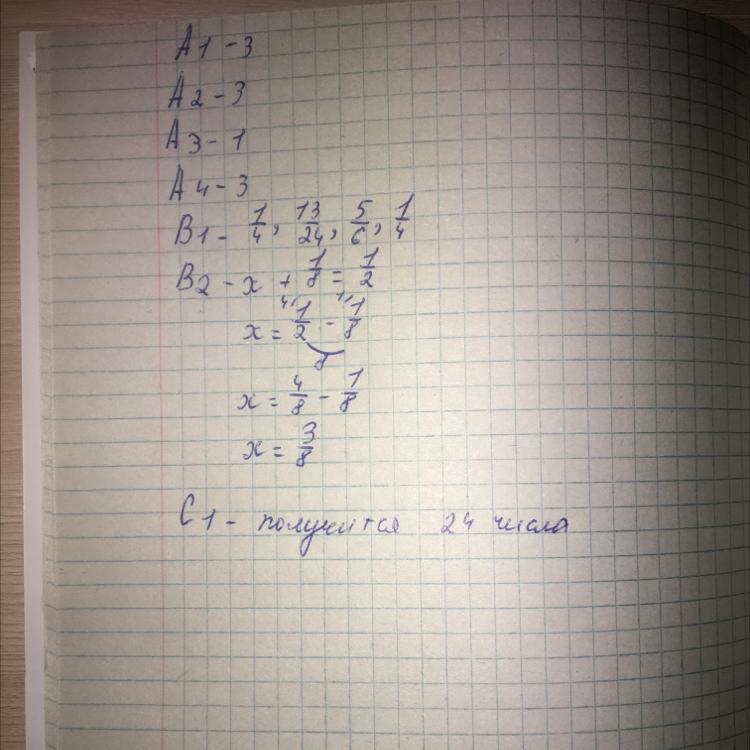 А1 - 3
А2 - 3
А3 - 1
А4 - 3
В1 - 1/4, 13/24, 5/6, 1/4
В2 - x + 1/8 = 1/2
x = 4\ 1/2 - 1\ 1/8
8
x = 4/8 - 1/8
x = 3/8
С1 - получится 24 числа